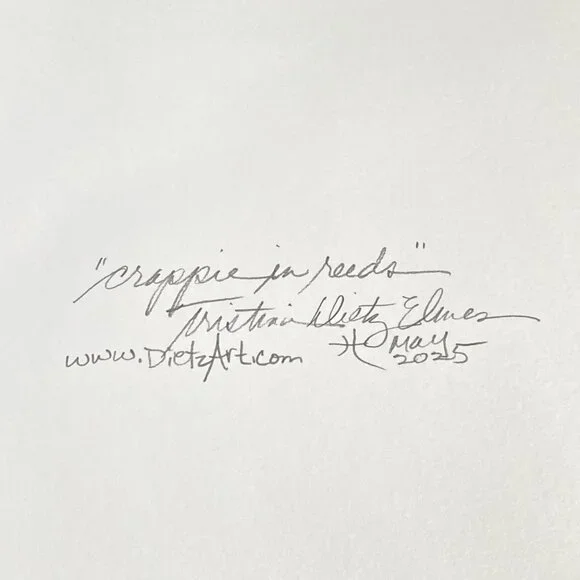 "crappie in reeds"
Kristina Dietz Elmes
www.DietzArt.com May
2025